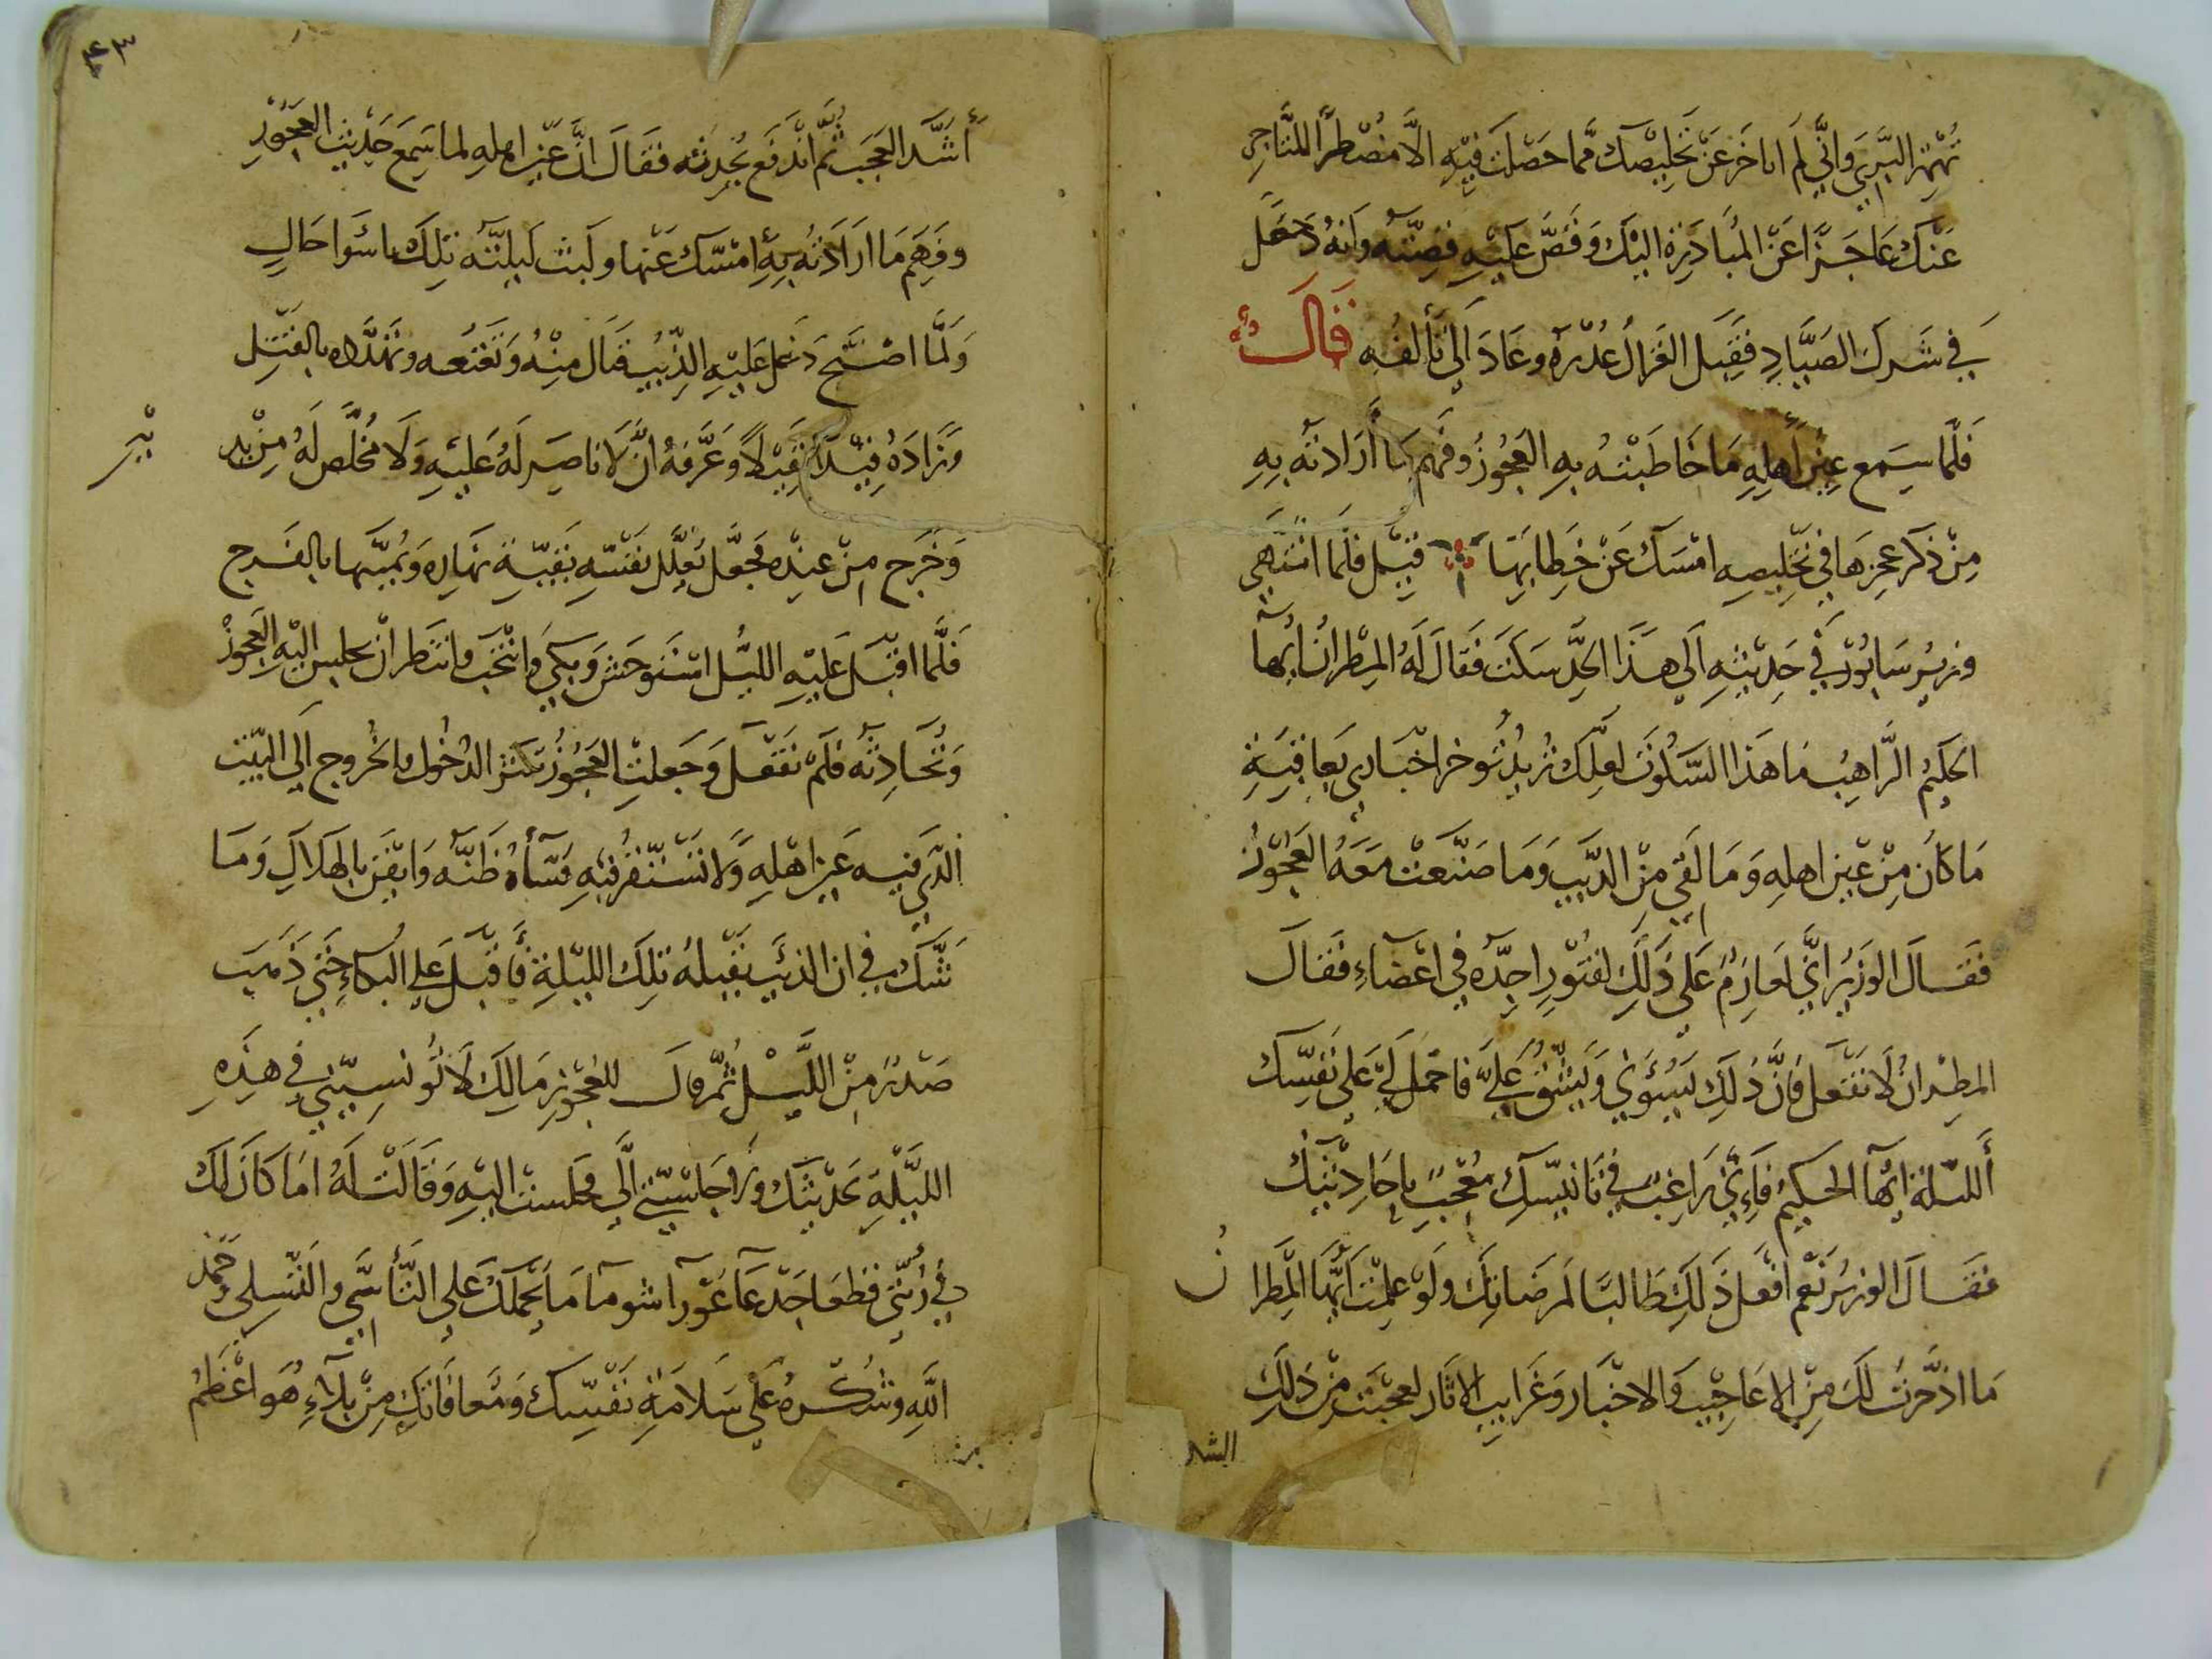 تهمز البري واني لم اتاخر عن تخليصك مما حصلت فيه الا مضطرا للتاجر
عنك عاجزا عن المبادرة اليك وقص عليه قصته وانه دخل
في شرك الصياد فقبل الغزال عذره وعاد الى تألفه قالت
فلما سمع عين اهله ما خاطبته به العجوز وفهم ما أرادته به
من ذكر عجزها في تخليصه امسك عن خطابها قيل فلما انتهى
وزير سابور في حديثه الى هذا الحد سكت فقال له المطران ايها
الحكيم الراهب ما هذا السكوت لعلك تريد توخر اخباري بعاقبة
ما كان من عين اهله وما لقي من الذيب وما صنعت معه العجوز
فقال الوزير اني لعازم على ذلك لفتور اجده في اعضاء فقال
المطران لا تفعل فان ذلك يسؤني ويشق علي فاحمل لي على نفسك
الليلة ايها الحكيم فإني راغب في تانيسك معجب باحاديثك
فقال الوزير نعم افعل ذلك طالبا لمرضاتك ولو علمت ايها المطران
ما ادخرت لك من الاعاجيب والاخبار وغرايب الاثار لعجبت من ذلك
اشد
٤٣
أشد العجب ثم اندفع يحدثه فقال ان عين اهله لما سمع حديث العجوز
وفهم ما ارادته به امسك عنها ولبث ليلته تلك باسوا حال
ولما اصبح دخل عليه الذيب فنال منه وتغتعه وتهدده بالقتل
وزاده قيدا ثقيلا وعرفه ان لا ناصر له عليه ولا مخلص له من يد
وخرج من عنده فجعل يعلل نفسه بقية نهاره ويمنيها بالفرج
فلما اقبل عليه الليل استوحش وبكى وانتحب وانتظر ان يجلس اليه العجوز
وتحادثه فلم تفعل وجعلت العجوز تكثر الدخول والخروج الى البيت
الذي فيه عين اهله ولا تستقر فيه فسأ ظنه وايقن بالهلاك وما
شك في ان الذئب يقتله تلك الليلة فأقبل على البكاء حتى ذهب
صدر من الليل ثم قال للعجوز مالك لا تؤنسيني في هذه
الليلة بحديثك ولا جالستي إلي فجلست اليه وقالت له اما كان لك
في رثتي قطعا جدعا عورا شوما ما يحملك على التأسي والتسلي وحمد
الله وشكره على سلامة نفسك ومعافاتك من بلاء هو اعظم